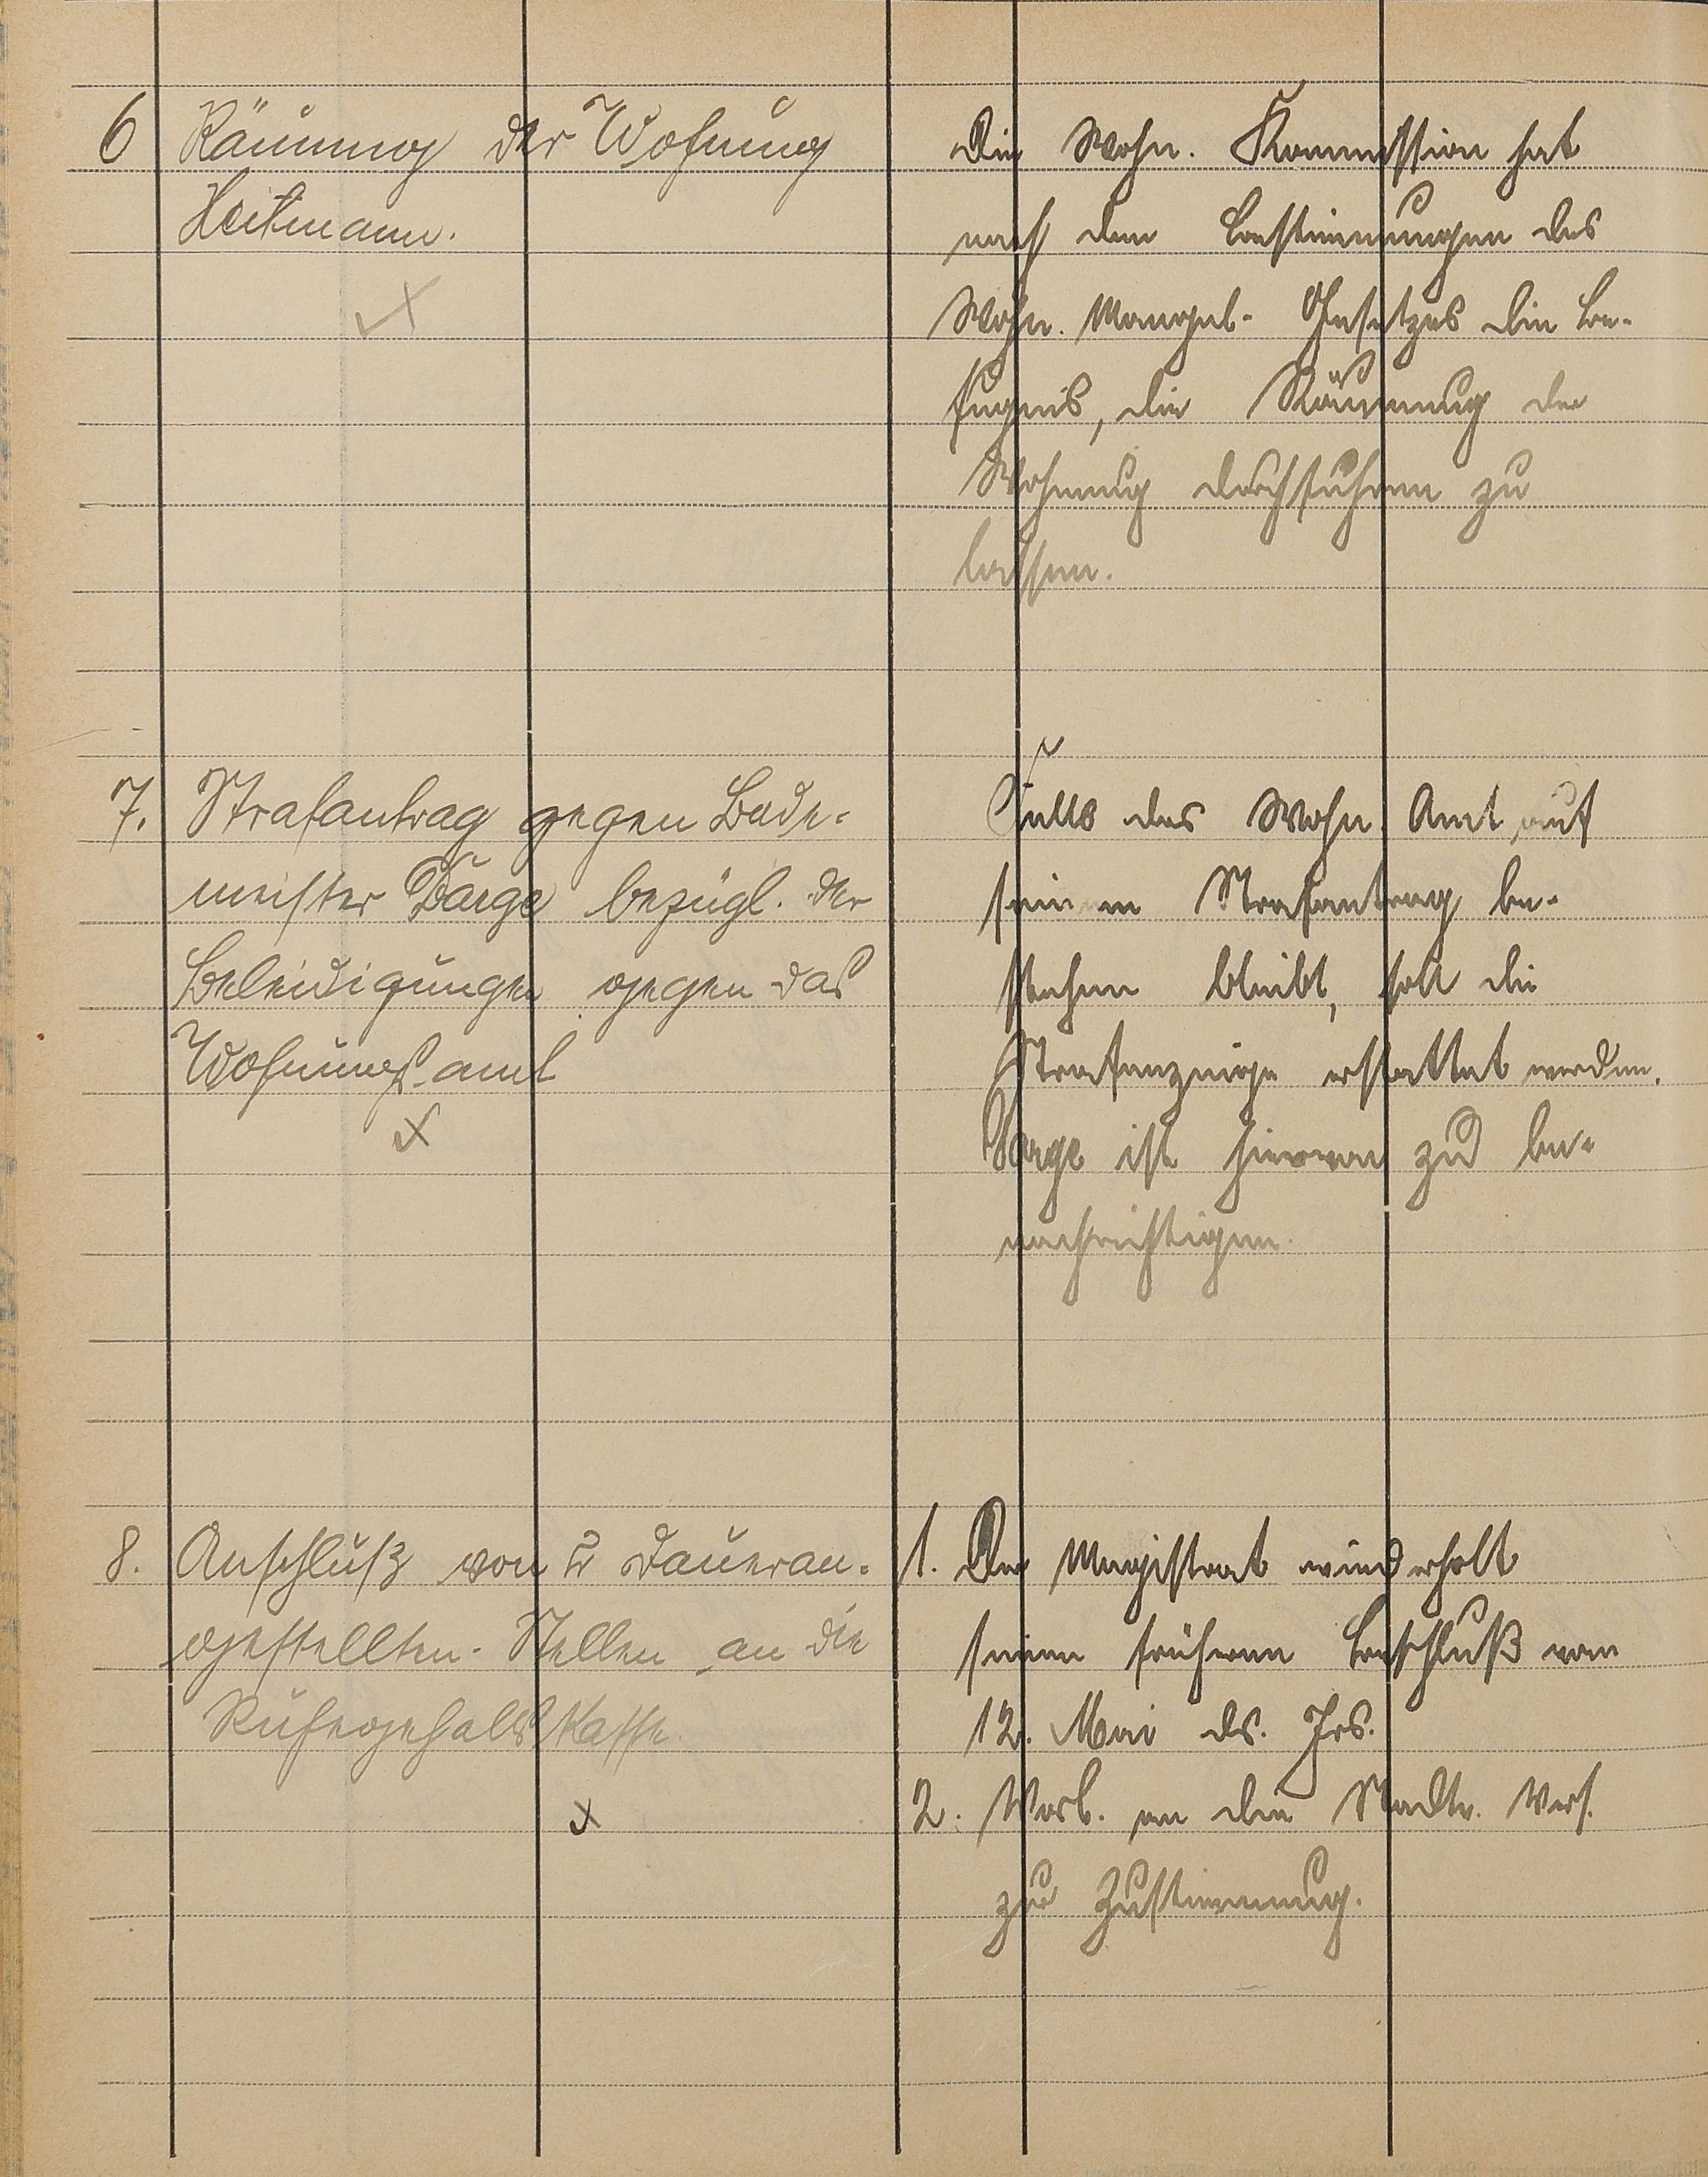 6 Räumung der Wohnung
Heitmann.
Die Wohn. Kommission hat
nach den Bestimmungen des
Wohn. Mangel- Gesetzes die Be-
fugnis, die Räumung der
Wohnung durchführen zu
lassen.
7. Strafantrag gegen Bade-
meister Barge bezügl. der
Beleidigungen gegen das
Wohnungsamt
Falls das Wohn. Amt auf
seinem Strafantrag be-
stehen bleibt, soll die
Strafanzeige erstattet werden.
Barge ist hiervon zu be-
nachrichtigen.
8. Anschluß von 2 Daueran-
gestellten- Stellen an die
Ruhegehaltskasse.
1. Der Magistrat wiederholt
seinen früheren Beschluß vom
12. Mai ds. Jrs.
2. Vorl. an die Stadtv. Vers.
zur Zustimmung.